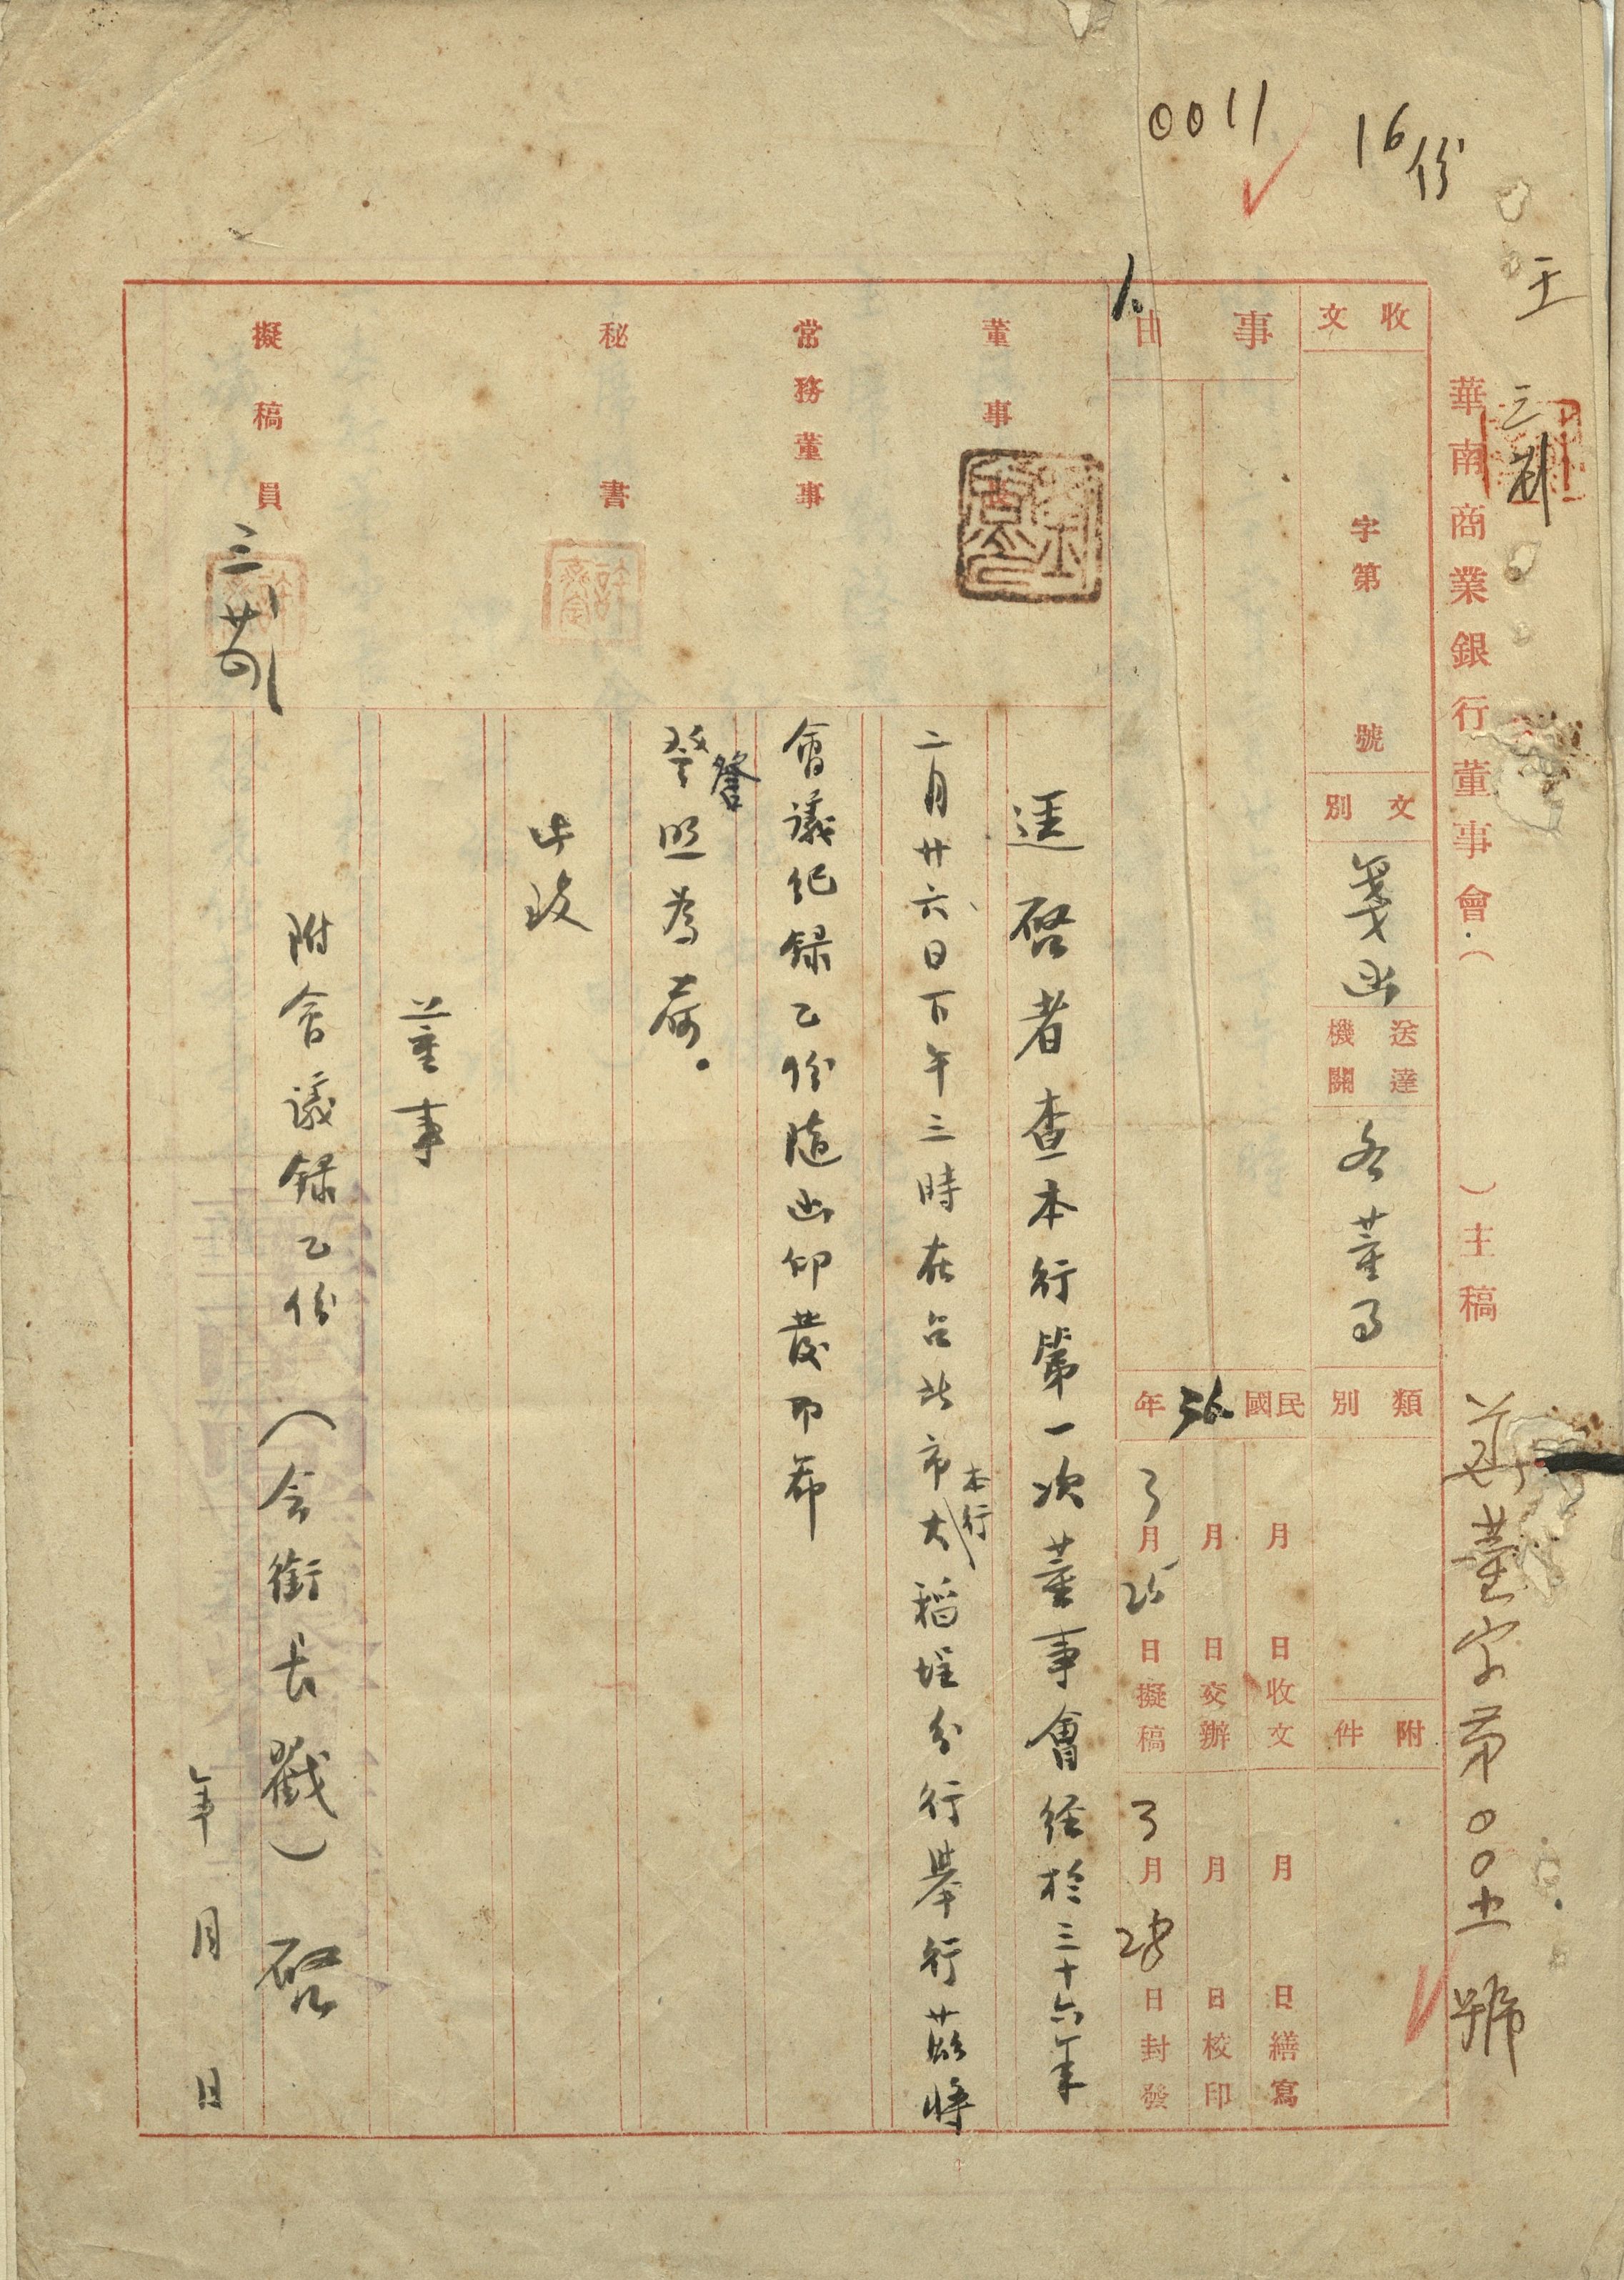 0011
16份
華南商業銀行董事會（　）主稿
華董字第00五號
收文
字第
號
文別
箋函
送達機關
各董事
類別
附件
事由
民國36年
月
日收文
月
日繕寫
月
日交辦
月
日校印
3月25日擬稿
3月28日封發
董事
常務董事
秘書
擬稿員
逕啓者查本行第一次董事會経於三十六年
二月廿六日下午三時在台北市大稻埕分行舉行茲將
本行
會議紀録乙份隨函仰印發即希
詧照為荷。
此致
董事
附會議録乙份（会銜長戳）啓
年月日